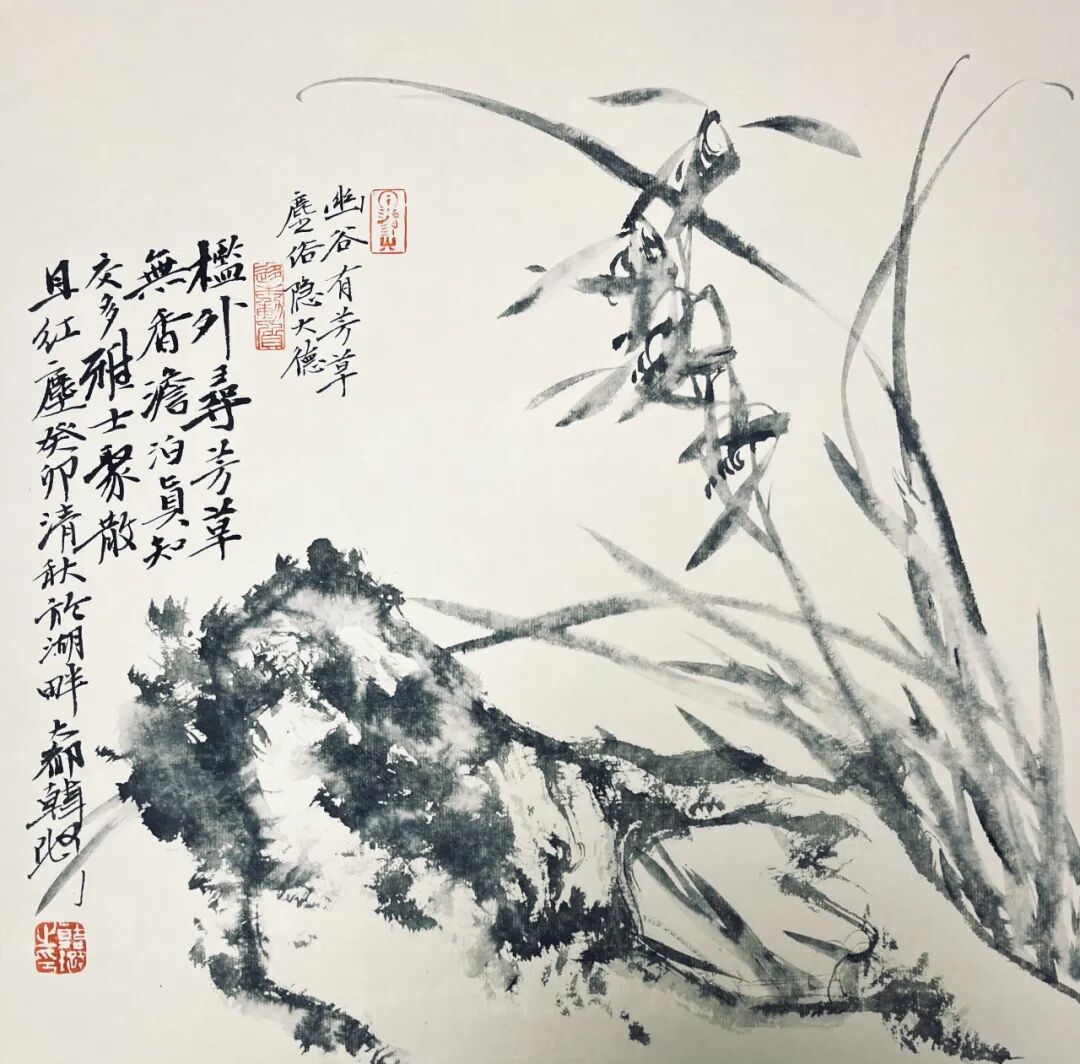 幽谷有芳草
塵俗隐大德
檻外尋芳草
無香澹泊真知
友多雅士聚散
且紅塵癸卯清秋於湖畔大都韓